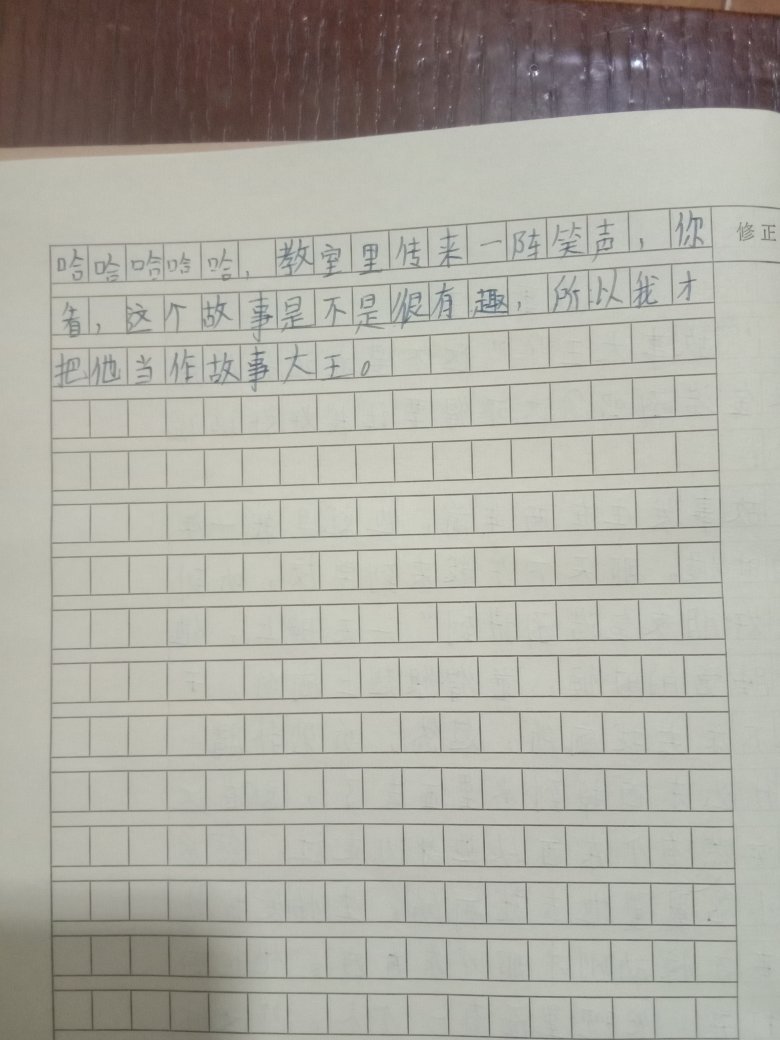 哈哈哈哈哈，教室里传来一阵笑声，你
修正
看，这个故事是不是很有趣，所以我才
把他当作故事大王。